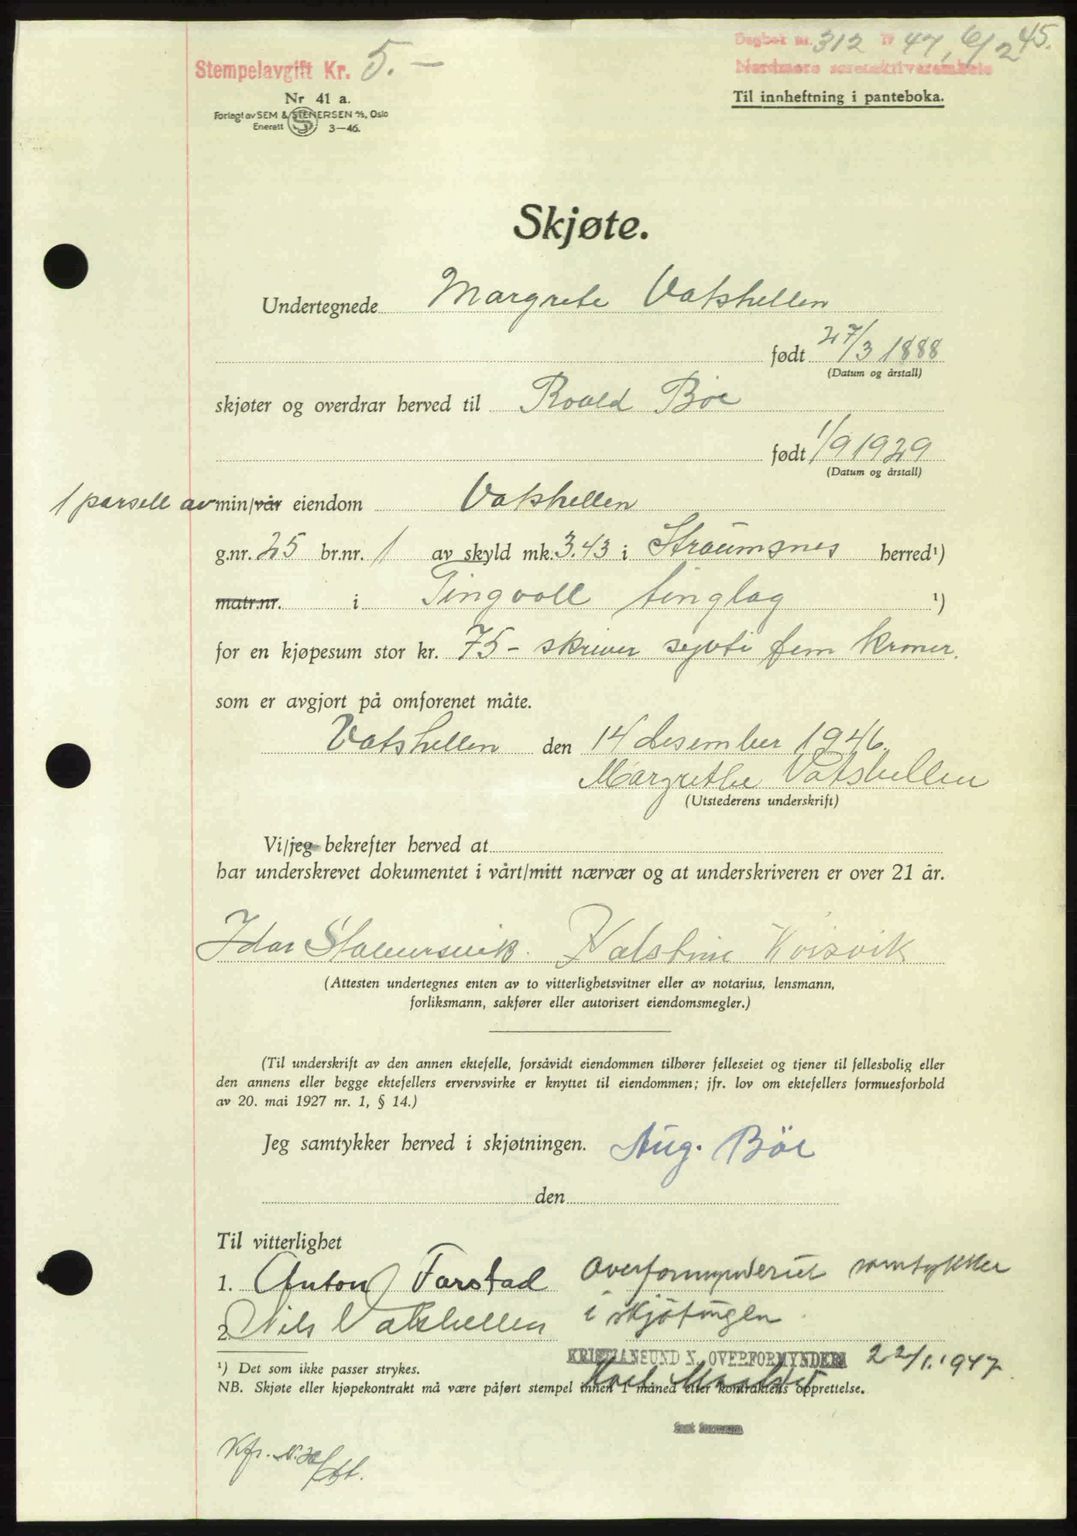 Dagbok nr. 312 19 47, 6/2 45.
Stempelavgift Kr. 5.-
Nordmøre sorenskriverembete
Nr 41 a.
Til innheftning i panteboka.
Forlagt av SEM & STENERSEN A/S, Oslo
Enerett 3-46.
Skjøte.
Undertegnede Margrete Vatshellen
født 27/3 1888
(Datum og årstall)
skjøter og overdrar herved til Roald Böe
født 1/9 1929
(Datum og årstall)
1 parsell av min/vår eiendom Vatshellen
g.nr. 25 br.nr. 1 av skyld mk. 3.43 i Straumsnes herred¹)
matr.nr. i Tingvoll tinglag ¹)
for en kjøpesum stor kr. 75- skriver sytti fem kroner.
som er avgjort på omforenet måte.
Vatshellen den 14 desember 1946.
Margrethe Vatshellen
(Utstederens underskrift)
Vi/jeg bekrefter herved at
har underskrevet dokumentet i vårt/mitt nærvær og at underskriveren er over 21 år.
Idar Kvisvik
(Attesten undertegnes enten av to vitterlighetsvitner eller av notarius, lensmann,
forliksmann, sakfører eller autorisert eiendomsmegler.)
(Til underskrift av den annen ektefelle, forsåvidt eiendommen tilhører felleseiet og tjener til fellesbolig eller
den annens eller begge ektefellers ervervsvirke er knyttet til eiendommen; jfr. lov om ektefellers formuesforhold
av 20. mai 1927 nr. 1, § 14.)
Jeg samtykker herved i skjøtningen. Aug. Böe
den
Til vitterlighet
1. Anton Farstad
Overformynderiet samtykker
i skjøtingen.
2. Nils Vatshellen
KRISTIANSUND N. OVERFORMYNDERI 22/1.1947.
¹) Det som ikke passer strykes.
NB. Skjøte eller kjøpekontrakt må være påført stempel innen 1 måned etter kontraktens opprettelse.
Kfr.